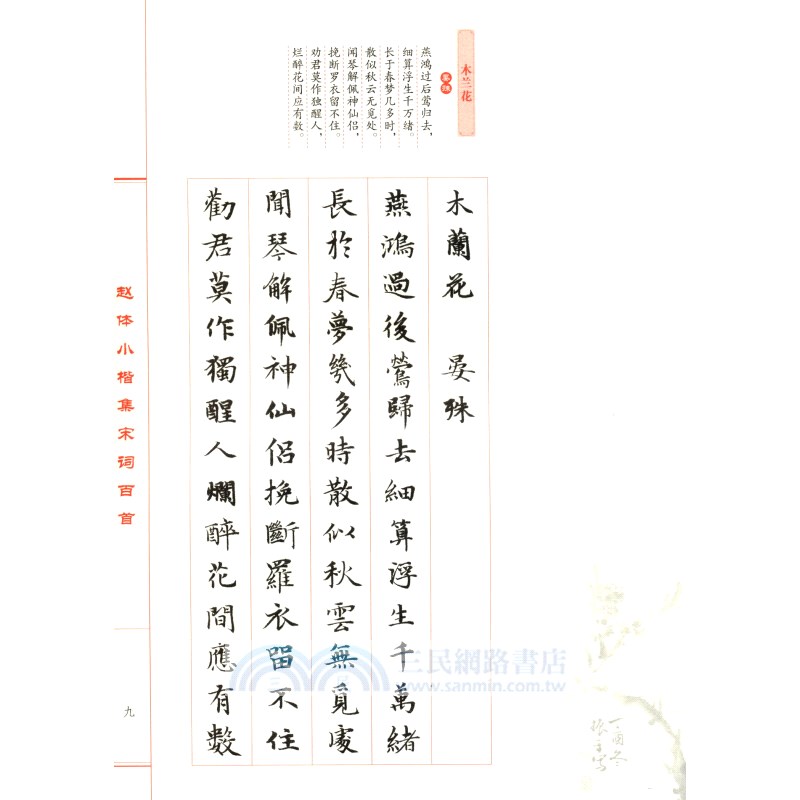 木兰花
晏殊
燕鸿过后莺归去，
细算浮生千万绪。
长于春梦几多时，
散似秋云无觅处。
闻琴解佩神仙侣，
挽断罗衣留不住。
劝君莫作独醒人，
烂醉花间应有数。
木蘭花 晏殊
燕鴻過後鶯歸去細算浮生千萬緒
長於春夢幾多時散似秋雲無覓處
聞琴解佩神仙侶挽斷羅衣留不住
勸君莫作獨醒人爛醉花間應有數
赵体小楷集宋词百首
九
三民網路書店
www.sanmin.com.tw